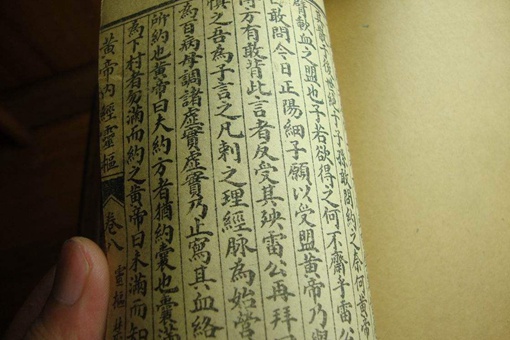 後世絕于子孫敢問約之奈何黃帝
臂歃血之盟也子若欲得之何不齋乎雷公
敢問今日正陽細子願以受盟黃帝乃與
方有敢背此言者反受其殃雷公再拜
慎之吾為子言之凡刺之理經脈為始營
為百病母調諸虛實虛實乃止寫其血絡
所約也黃帝曰大約方者猶約囊也囊滿
為下村者勿滿而約之黃帝曰未滿而知
黃帝內經靈樞 卷八